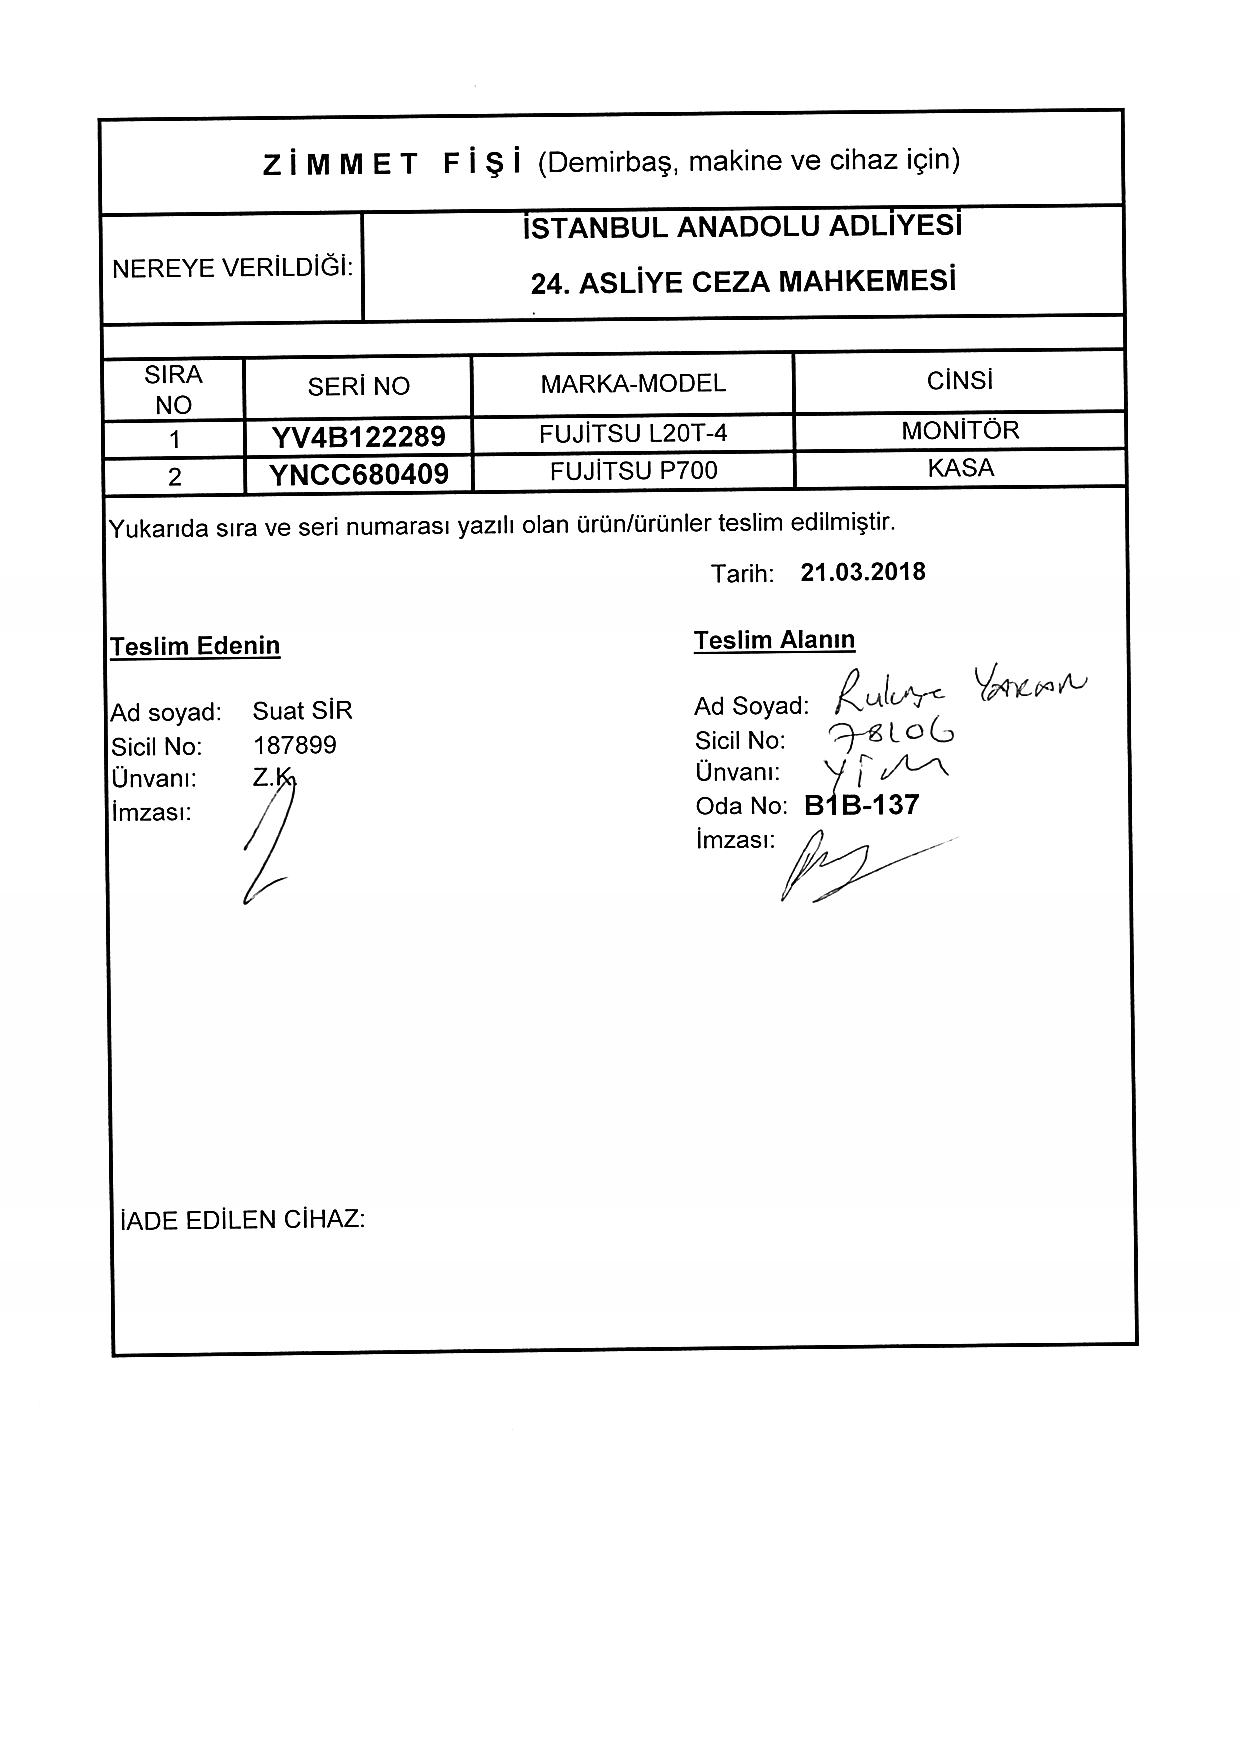 ZİMMET FİŞİ (Demirbaş, makine ve cihaz için)
NEREYE VERİLDİĞİ:
İSTANBUL ANADOLU ADLİYESİ
24. ASLİYE CEZA MAHKEMESİ
SIRA NO SERİ NO MARKA-MODEL CİNSİ
1 YV4B122289 FUJİTSU L20T-4 MONİTÖR
2 YNCC680409 FUJİTSU P700 KASA
Yukarıda sıra ve seri numarası yazılı olan ürün/ürünler teslim edilmiştir.
Tarih: 21.03.2018
Teslim Edenin
Ad soyad: Suat SİR
Sicil No: 187899
Ünvanı: Z.K
İmzası:
Teslim Alanın
Ad Soyad:
Sicil No: 78106
Ünvanı:
Oda No: B1B-137
İmzası:
İADE EDİLEN CİHAZ: